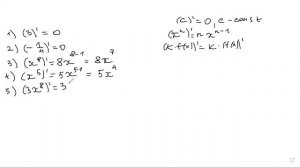 1) (3)' = 0
2) (-1/4)' = 0
3) (x⁸)' = 8x⁸⁻¹ = 8x⁷
4) (x⁵)' = 5x⁵⁻¹ = 5x⁴
5) (3x⁸)' = 3
(c)' = 0, c - const
(xⁿ)' = n xⁿ⁻¹
(k·f(x))' = k·f(x)'